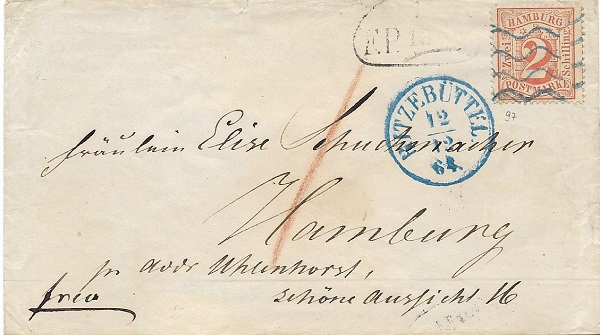 HAMBURG
Zwei Schilling
2
POSTMARKE
F.P.
RITZEBÜTTEL
12
12
64
97
Fräulein Elise Schuchmacher
Hamburg
pr addr Uhlenhorst,
freo schöne Aussicht 16